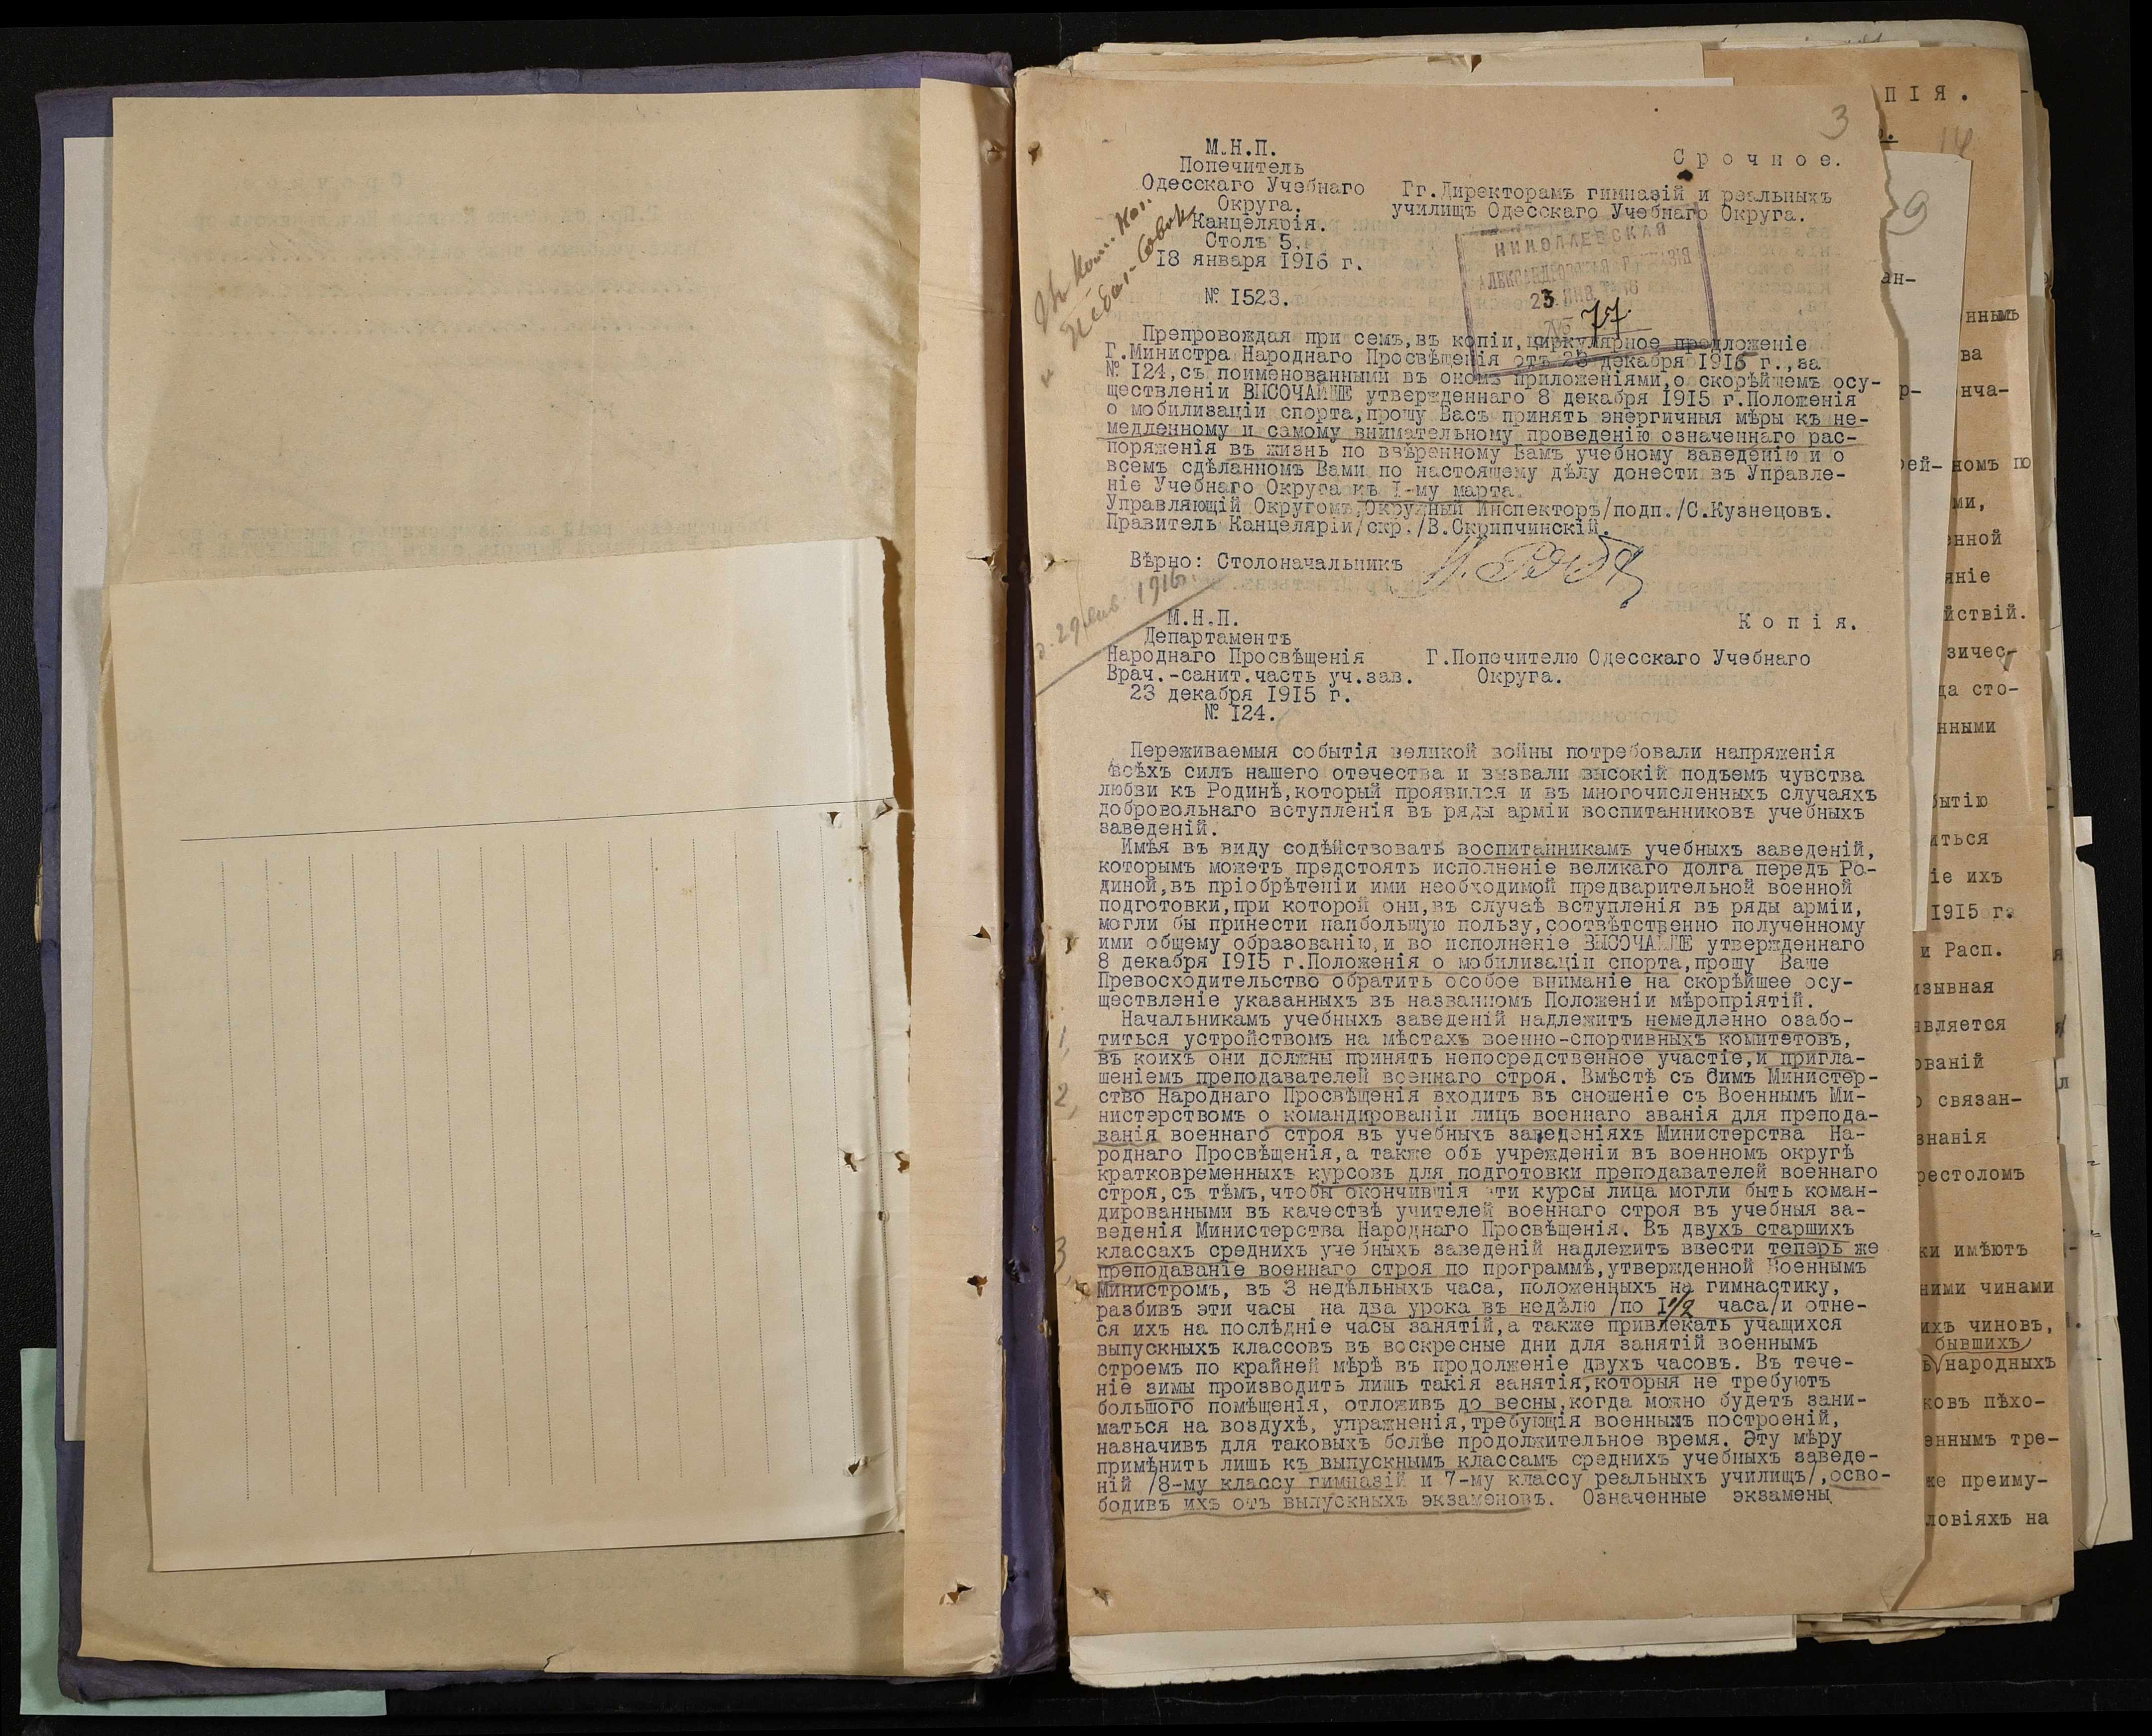 3
М.Н.П.
Попечитель
Одесскаго Учебнаго
Округа.
Канцелярія.
Столъ 5.
18 января 1916 г.
№ 1523.
Срочное.
Гг.Директорамъ гимназій и реальныхъ
училищъ Одесскаго Учебнаго Округа.
НИКОЛАЕВСКАЯ
АЛЕКСАНДРОВСКАЯ ГИМНАЗІЯ
23 ЯНВ 1916
№ 77.
Препровождая при семъ,въ копіи,циркулярное предложеніе
Г.Министра Народнаго Просвѣщенія отъ 23 декабря 1915 г.,за
№ 124,съ поименованными въ ономъ приложеніями,о скорѣйшемъ осу-
ществленіи ВЫСОЧАЙШЕ утвержденнаго 8 декабря 1915 г.Положенія
о мобилизаціи спорта,прошу Васъ принять энергичныя мѣры къ не-
медленному и самому внимательному проведенію означеннаго рас-
поряженія въ жизнь по ввѣренному Вамъ учебному заведенію и о
всемъ сдѣланномъ Вами по настоящему дѣлу донести въ Управле-
ніе Учебнаго Округа къ 1-му марта.
Управляющій Округомъ,Окружный Инспекторъ/подп./С.Кузнецовъ.
Правитель Канцеляріи/скр./В.Скрипчинскій.
Вѣрно: Столоначальникъ
29 янв. 1916 г.
М.Н.П.
Департаментъ
Народнаго Просвѣщенія
Врач.-санит.часть уч.зав.
23 декабря 1915 г.
№ 124.
Копія.
Г.Попечителю Одесскаго Учебнаго
Округа.
Переживаемыя событія великой войны потребовали напряженія
всѣхъ силъ нашего отечества и вызвали высокій подъемъ чувства
любви къ Родинѣ,который проявился и въ многочисленныхъ случаяхъ
добровольнаго вступленія въ ряды арміи воспитанниковъ учебныхъ
заведеній.
Имѣя въ виду содѣйствовать воспитанникамъ учебныхъ заведеній,
которымъ можетъ предстоять исполненіе великаго долга передъ Ро-
диной,въ пріобрѣтеніи ими необходимой предварительной военной
подготовки,при которой они,въ случаѣ вступленія въ ряды арміи,
могли бы принести наибольшую пользу,соотвѣтственно полученному
ими общему образованію,и во исполненіе ВЫСОЧАЙШЕ утвержденнаго
8 декабря 1915 г.Положенія о мобилизаціи спорта,прошу Ваше
Превосходительство обратить особое вниманіе на скорѣйшее осу-
ществленіе указанныхъ въ названномъ Положеніи мѣропріятій.
Начальникамъ учебныхъ заведеній надлежитъ немедленно озабо-
1, титься устройствомъ на мѣстахъ военно-спортивныхъ комитетовъ,
въ коихъ они должны принять непосредственное участіе,и пригла-
2, шеніемъ преподавателей военнаго строя. Вмѣстѣ съ симъ Министер-
ство Народнаго Просвѣщенія входитъ въ сношеніе съ Военнымъ Ми-
нистерствомъ о командированіи лицъ военнаго званія для препода-
ванія военнаго строя въ учебныхъ заведеніяхъ Министерства На-
роднаго Просвѣщенія,а также объ учрежденіи въ военномъ округѣ
кратковременныхъ курсовъ для подготовки преподавателей военнаго
строя,съ тѣмъ,чтобы окончившія эти курсы лица могли быть коман-
дированными въ качествѣ учителей военнаго строя въ учебныя за-
веденія Министерства Народнаго Просвѣщенія. Въ двухъ старшихъ
3, классахъ среднихъ учебныхъ заведеній надлежитъ ввести теперь же
преподаваніе военнаго строя по программѣ,утвержденной Военнымъ
Министромъ, въ 3 недѣльныхъ часа, положенныхъ на гимнастику,
разбивъ эти часы на два урока въ недѣлю /по 1 1/2 часа/и отне-
ся ихъ на послѣдніе часы занятій,а также привлекать учащихся
выпускныхъ классовъ въ воскресные дни для занятій военнымъ
строемъ по крайней мѣрѣ въ продолженіе двухъ часовъ. Въ тече-
ніе зимы производить лишь такія занятія,которыя не требуютъ
большого помѣщенія, отложивъ до весны,когда можно будетъ зани-
маться на воздухѣ, упражненія,требующія военныхъ построеній,
назначивъ для таковыхъ болѣе продолжительное время. Эту мѣру
примѣнить лишь къ выпускнымъ классамъ среднихъ учебныхъ заведе-
ній /8-му классу гимназій и 7-му классу реальныхъ училищъ/,осво-
бодивъ ихъ отъ выпускныхъ экзаменовъ. Означенные экзамены
ПІЯ.
14
9
ан-
ннымъ
ва
р-
нча-
рей-
номъ по
ми,
енной
яніе
йствій.
зичес-
да сто-
нными
бытію
иться
іе ихъ
1915 г.
и Расп.
изывная
является
ованій
о связан-
знанія
рестоломъ
ки имѣютъ
ними чинами
ихъ чиновъ,
бывшихъ
ъ народныхъ
ковъ пѣхо-
еннымъ тре-
же преиму-
ловіяхъ на